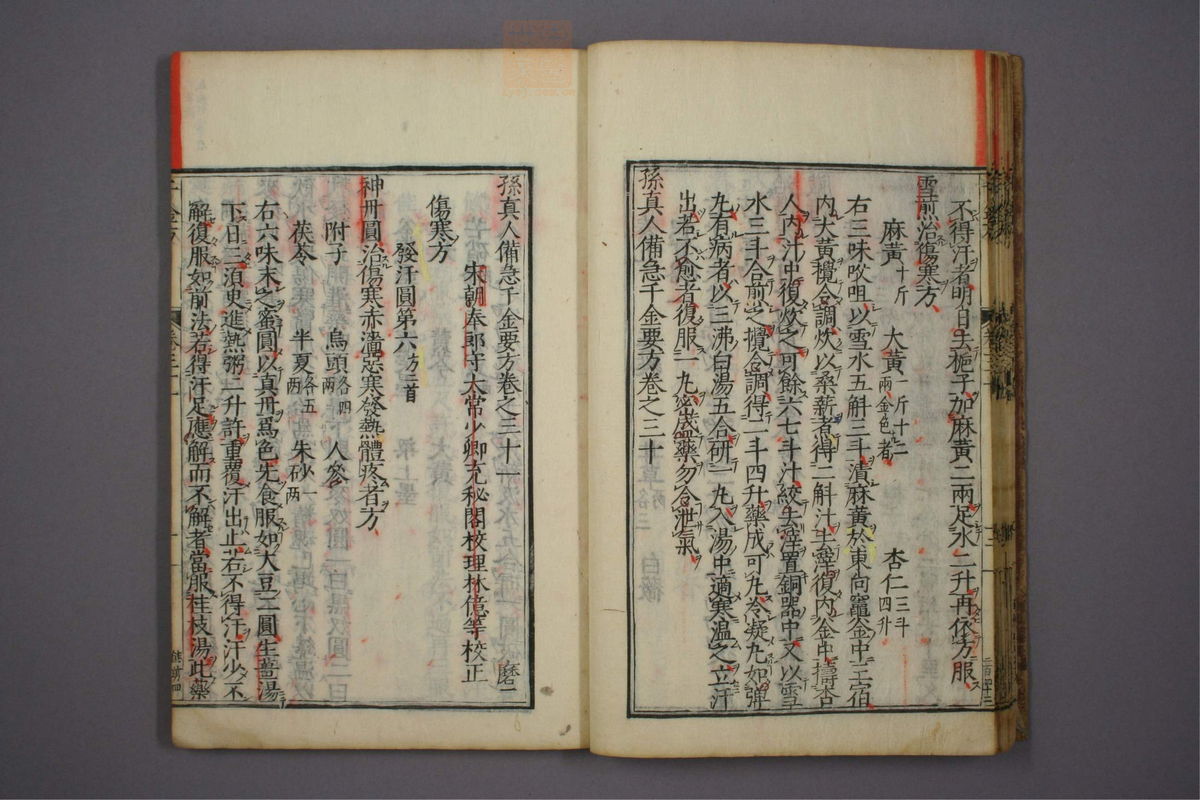 不得汗者明日去梔子加麻黄二兩足水二升再依方服
雪煎治傷寒方
麻黄十斤 大黄一斤十二兩金色者 杏仁三斗四升
右三味㕮咀以雪水五斛三斗漬麻黄於東向竈釜中三宿
内大黄攪令調炊以桑薪煮得二斛汁去滓復内釜中擣杏
人内汁中復炊之可餘六七斗汁絞去滓置銅器中又以雪
水三斗合前之攪令調得二斗四升藥成可丸冷凝丸如彈
丸有病者以三沸白湯五合研一丸入湯中適寒温之立汗
出若不愈者復服一丸密盛藥勿令泄氣
孫真人備急千金要方卷之三十
孫真人備急千金要方卷之三十一 磨二
宋朝奉郎守太常少卿充秘閣校理林億等校正
傷寒方
發汗圓第六方二首
神丹圓治傷寒赤濇惡寒發熱體疼者方
附子 烏頭各四兩 人參
茯苓 半夏各五兩 朱砂一兩
右六味末之蜜圓以真丹爲色先食服如大豆二圓生薑湯
下日三須臾進熱粥二升許重覆汗出止若不得汗汗少不
解復服如前法若得汗足應解而不解者當服桂枝湯此藥